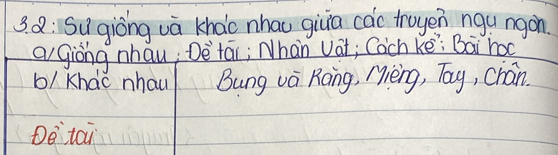 3.2: Sự giống và khác nhau giữa các truyện ngụ ngôn.
a/ Giống nhau: Đề tài; Nhân vật; Cách kể; Bài học
b/ Khác nhau Bụng và Răng, Miệng, Tay, Chân.
Đề tài